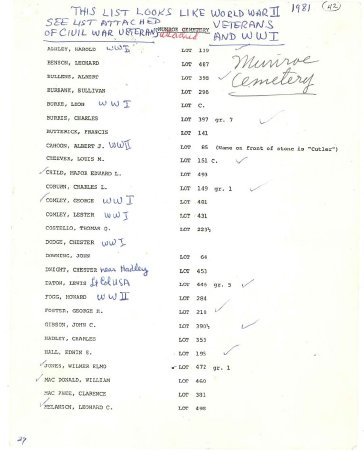 THIS LIST LOOKS LIKE WORLD WAR II 1981 (42)
SEE LIST ATTACHED VETERANS
OF CIVIL WAR VETERANS MUNROE CEMETERY AND WW I
Munroe Cemetery
ADHLEY, HAROLD WW II LOT 119
BENSON, LEONARD LOT 487
BULLENS, ALBERT LOT 358
BURBANK, SULLIVAN LOT 298
BURKE, LEON WW I LOT C.
BURRIS, CHARLES LOT 397 gr. 7
BUTTERICK, FRANCIS LOT 141
CAHOON, ALBERT J. WW II LOT 85 (Name on front of stone is "Cutler")
CHEEVER, LOUIS M. LOT 151 C.
CHILD, MAJOR EDWARD L. LOT 493
COBURN, CHARLES L. LOT 149 gr. 1
COMLEY, GEORGE WW I LOT 401
COMLEY, LESTER WW I LOT 431
COSTELLO, THOMAS Q. LOT 223½
DODGE, CHESTER WW I
DOWNING, JOHN LOT 64
DWIGHT, CHESTER near Hadley LOT 453
EATON, LEWIS Lt Col USA LOT 446 gr. 5
FOGG, HOWARD WW II LOT 284
FOSTER, GEORGE H. LOT 218
GIBSON, JOHN C. LOT 390½
HADLEY, CHARLES LOT 353
HALL, EDWIN E. LOT 195
JONES, WILMER ELMO LOT 472 gr. 1
MAC DONALD, WILLIAM LOT 460
MAC PHEE, CLARENCE LOT 381
MELANSON, LEONARD C. LOT 498